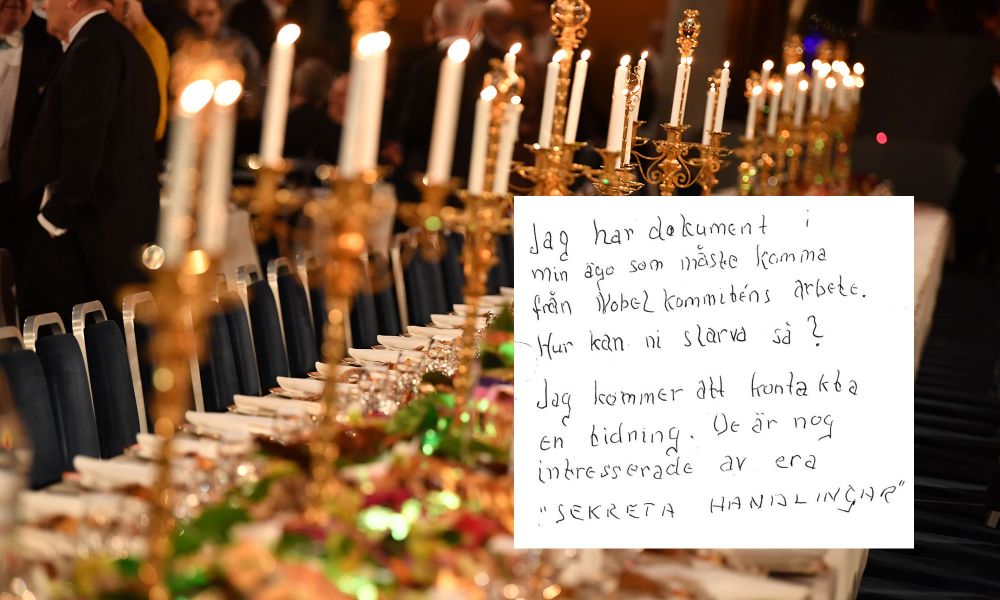 Jag har dokument i
min ägo som måste komma
från Nobelkommiténs arbete.
Hur kan ni slarva så?
Jag kommer att kontakta
en tidning. De är nog
intresserade av era
"SEKRETA HANDLINGAR"